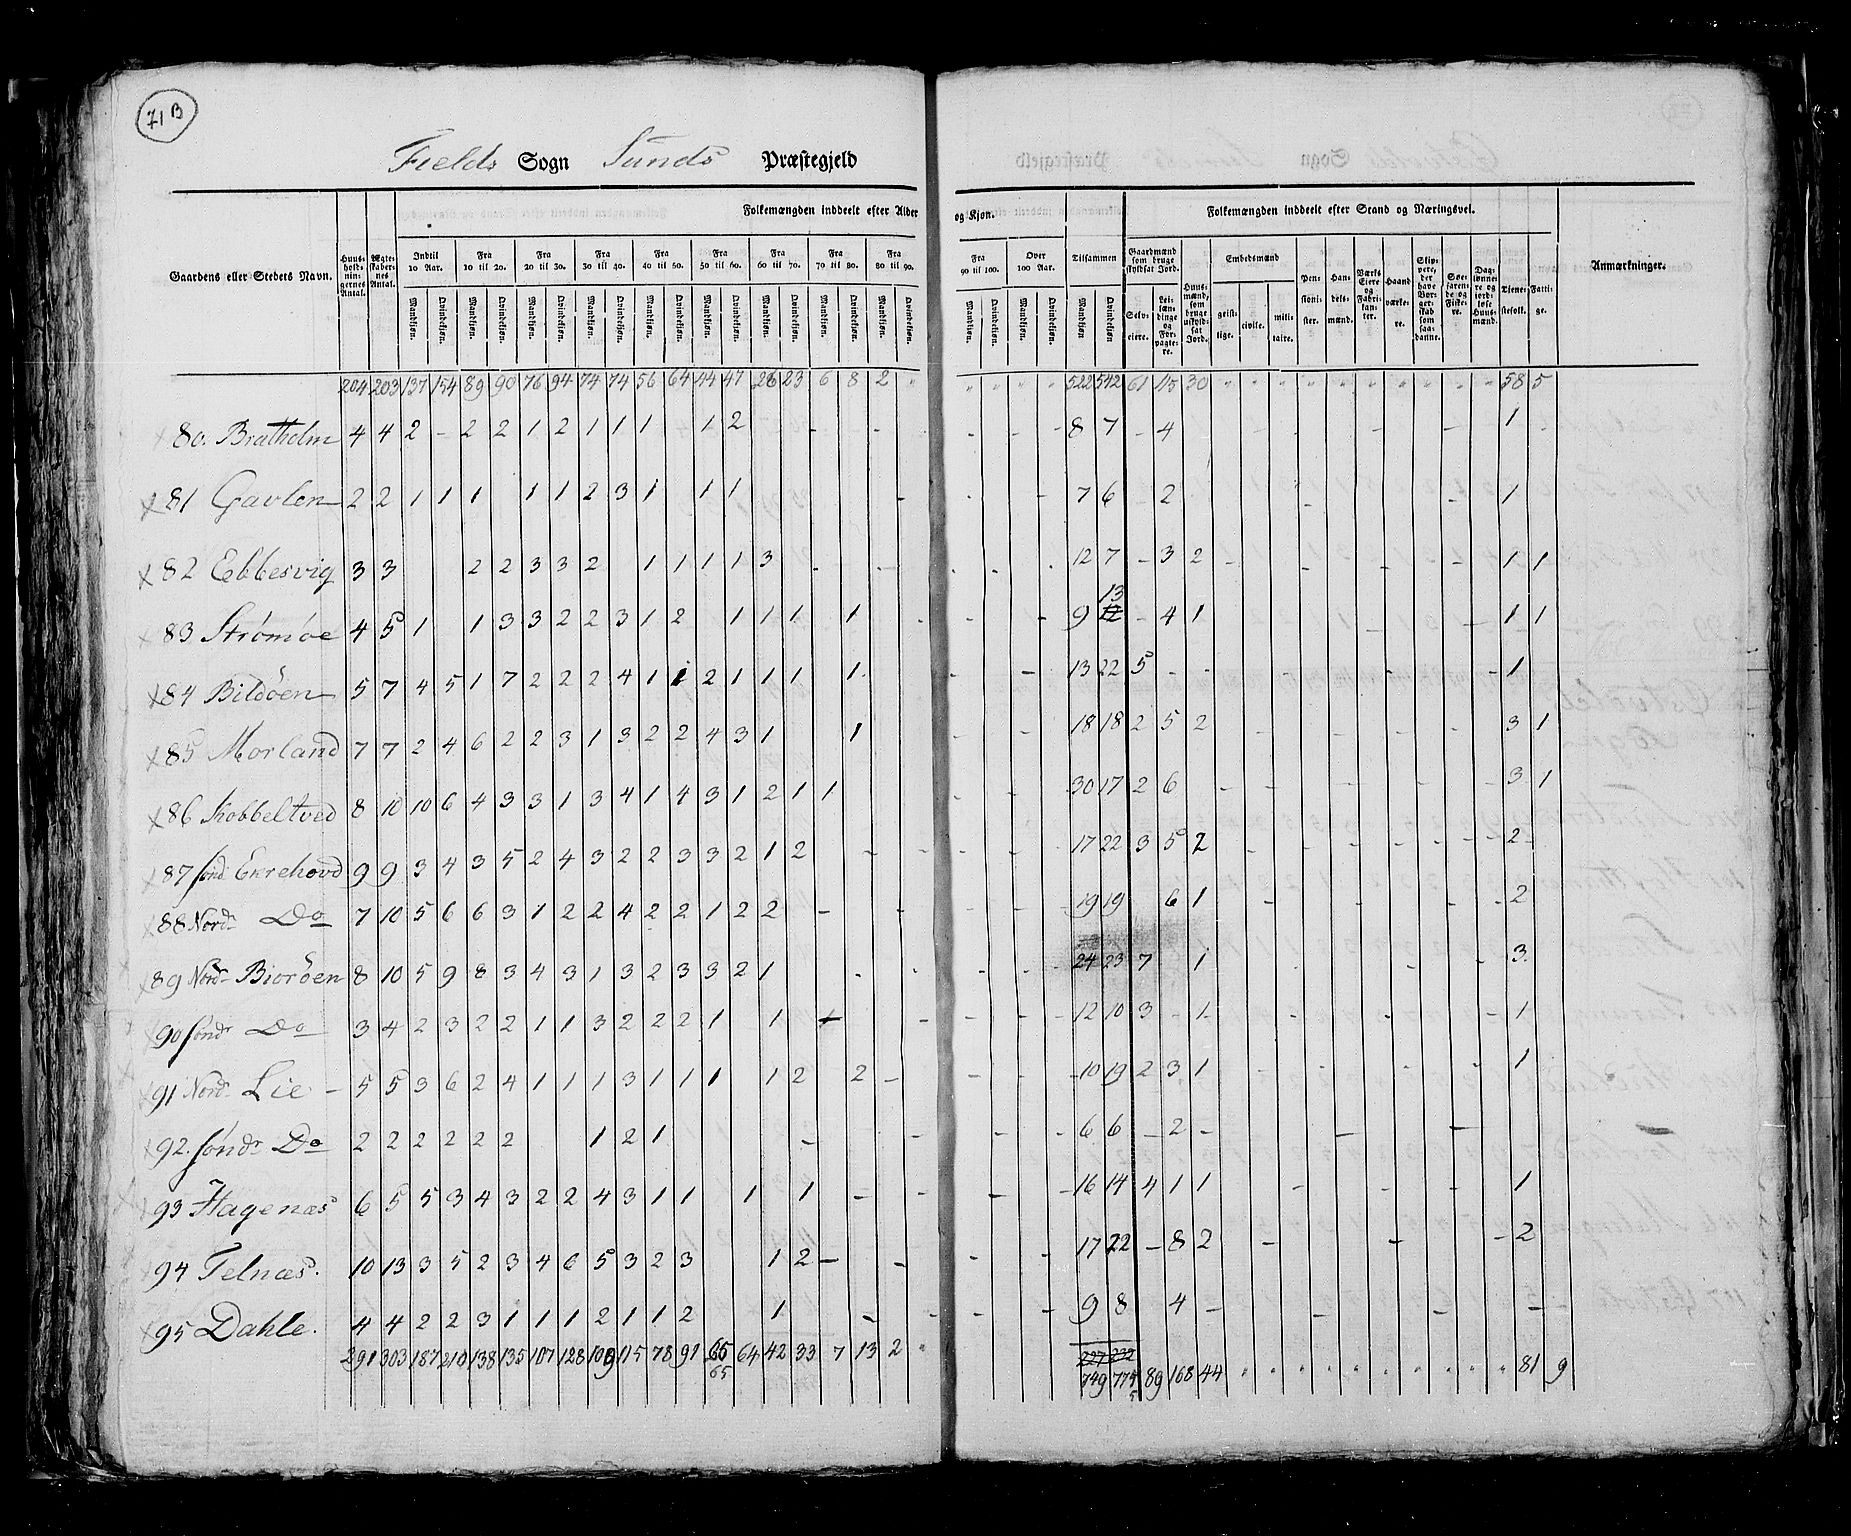 71 B
Fields Sogn Sunds Præstegjeld
Folkemængden inddeelt efter Alder og Kjøn.
Folkemængden inddeelt efter Stand og Næringsvei.
Gaardens eller Stedets Navn.
Huusholdningernes Antal.
Ægteskabernes Antal.
Indtil 10 Aar. Fra 10 til 20. Fra 20 til 30. Fra 30 til 40. Fra 40 til 50. Fra 50 til 60. Fra 60 til 70. Fra 70 til 80. Fra 80 til 90. Fra 90 til 100. Over 100 Aar. Tilsammen
Mandkjøn. Qvindekjøn.
Gaardmænd som bruge skyldsat Jord. Selveiere. Leilændinge og Forpagtere.
Huusmænd, som bruge uskyldsat Jord.
Embedsmænd geistlige. civile. militaire.
Pensionister.
Handelsmænd.
Værks Eiere og Fabrikanter.
Haandværkere.
Skippere, der have Borgerskab som saadanne.
Søefarende og Fiskere.
Daglønnere og jordløse Huusmænd.
Tienestefolk.
Fattige.
Anmærkninger.
204 203 137 154 89 90 76 94 74 74 56 64 44 47 26 23 6 8 2 " " " " " 522 542 61 115 30 " " " " " " " " " " 58 5
80. Bratholm 4 4 2 - 2 2 1 2 1 1 1 1 2 - - 8 7 - 4 1 -
81 Gavlen 2 2 1 1 1 1 1 2 3 1 1 1 - 7 6 - 2 1
82 Ebbesvig 3 3 2 2 3 3 2 1 1 1 1 3 - - 12 7 - 3 2 1 1
83 Strømøe 4 5 1 1 3 3 2 2 3 1 2 1 1 1 1 9 13 - 4 1 1 1
84 Bildöen 5 7 4 5 1 7 2 2 2 4 1 1 2 1 1 1 1 13 22 5 - - 1
85 Morland 7 7 2 4 6 2 2 3 1 3 2 2 4 3 1 1 18 18 2 5 2 3 1
86 Kobbeltved 8 10 10 6 4 3 3 1 3 4 1 4 3 1 2 1 1 30 17 2 6 3 1
87 sönd Ekrehovd 9 9 3 4 3 5 2 4 3 2 2 3 3 2 1 2 17 22 3 5 2 2
88 Nord Do 7 10 5 6 6 3 1 2 2 4 2 2 1 2 2 - 19 19 6 1 2
89 Nord Biöröen 8 10 5 9 8 3 4 3 1 3 2 3 3 2 1 24 23 7 1 3
90 söndr Do 3 4 2 3 2 2 1 1 3 2 2 2 1 1 12 10 3 - 1 1
91 Nord Lie - 5 5 3 6 2 4 1 1 1 3 1 1 1 1 2 2 - 10 19 2 3 1 1
92. söndr Do 2 2 2 2 2 2 1 2 1 - 6 6 - 2 -
93 Hagenæs 6 5 5 3 4 3 2 2 4 3 1 1 1 1 - 16 14 4 1 1 1
94 Telnæs. 10 13 3 5 2 3 4 6 5 3 2 3 1 2 - 17 22 - 8 2 2
95 Dahle. 4 4 2 2 3 1 1 1 2 1 1 2 1 9 8 4 - -
291 303 187 210 138 135 107 128 109 115 78 91 65 64 42 33 7 13 2 " 227 232
65 749 774 89 168 44 " " " " " " " " " " 81 9
5